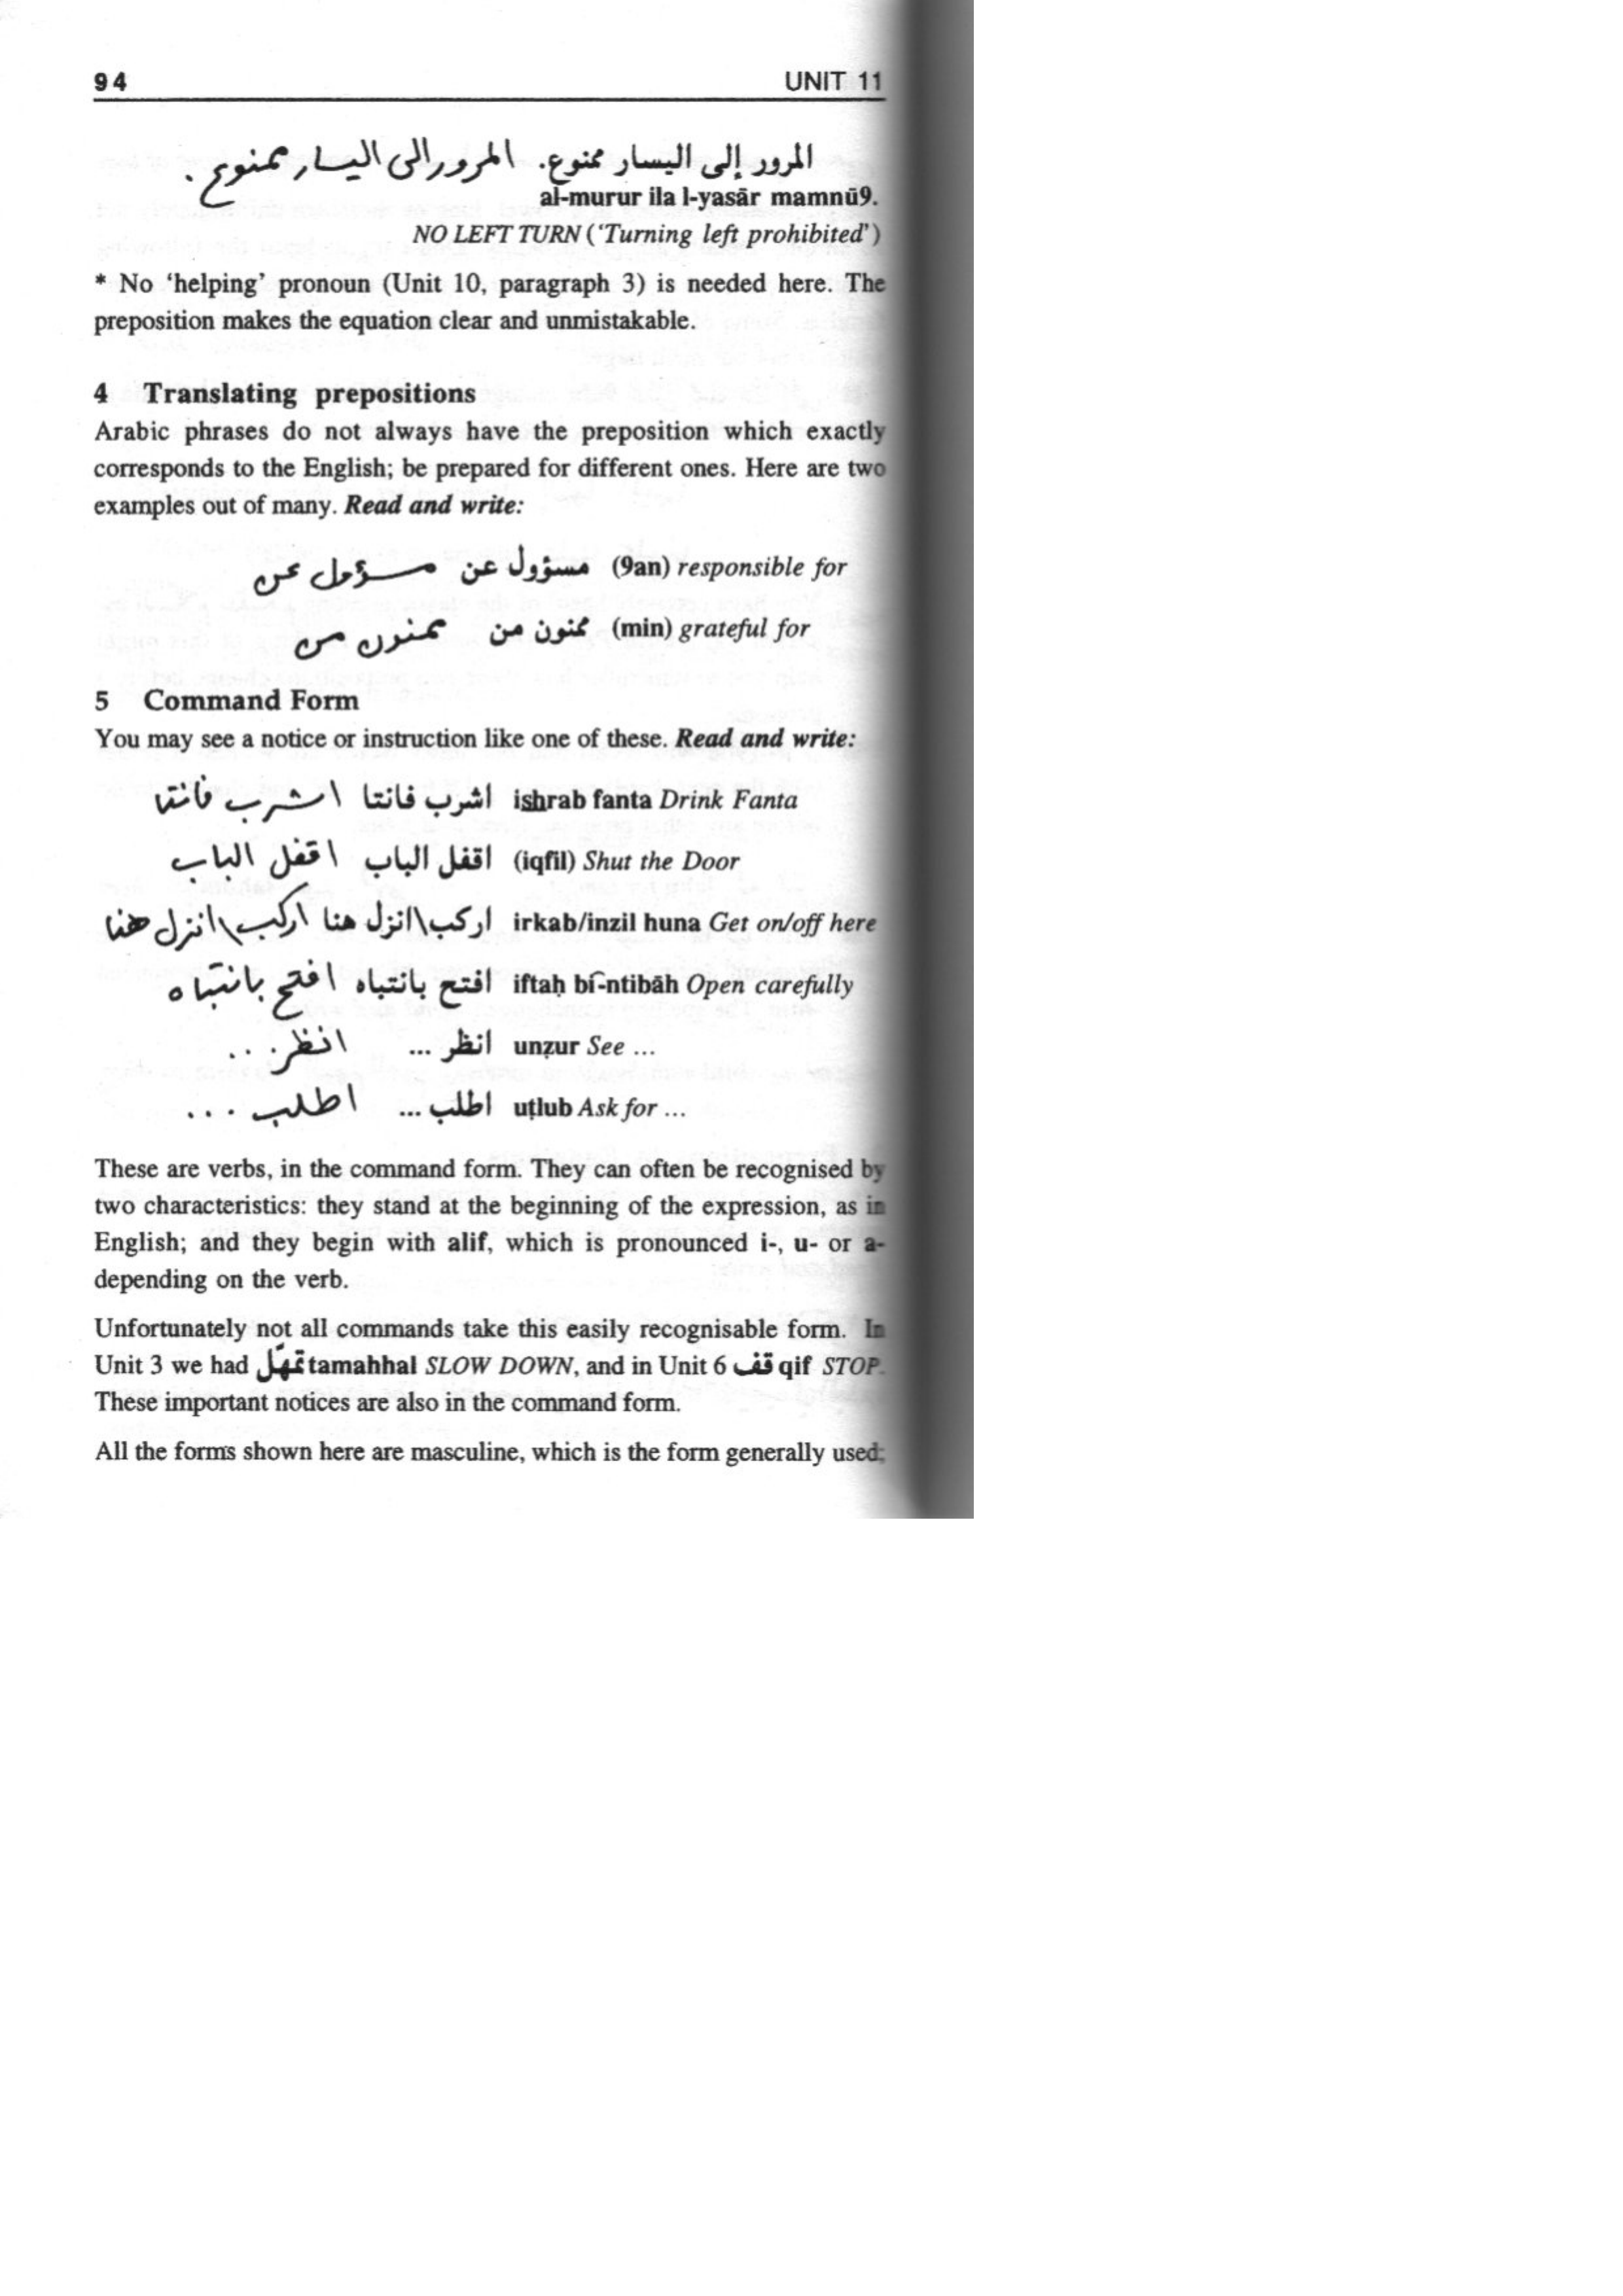 94 UNIT 11
المرور إلى اليسار ممنوع. المرور الى اليسار ممنوع.
al-murur ila l-yasār mamnū9.
NO LEFT TURN ('Turning left prohibited')
* No 'helping' pronoun (Unit 10, paragraph 3) is needed here. The
preposition makes the equation clear and unmistakable.
4 Translating prepositions
Arabic phrases do not always have the preposition which exactly
corresponds to the English; be prepared for different ones. Here are two
examples out of many. Read and write:
مسؤول عن مسؤول عن (9an) responsible for
ممنون من ممنون من (min) grateful for
5 Command Form
You may see a notice or instruction like one of these. Read and write:
اشرب فانتا اشرب فانتا ishrab fanta Drink Fanta
اقفل الباب اقفل الباب (iqfil) Shut the Door
اركب\انزل هنا اركب\انزل هنا irkab/inzil huna Get on/off here
افتح بانتباه افتح بانتباه iftaḥ bi-ntibāh Open carefully
انظر ... انظر... unẓur See ...
اطلب ... اطلب ... uṭlub Ask for ...
These are verbs, in the command form. They can often be recognised by
two characteristics: they stand at the beginning of the expression, as in
English; and they begin with alif, which is pronounced i-, u- or a-
depending on the verb.
Unfortunately not all commands take this easily recognisable form. In
Unit 3 we had تمهّل tamahhal SLOW DOWN, and in Unit 6 قف qif STOP.
These important notices are also in the command form.
All the forms shown here are masculine, which is the form generally used;